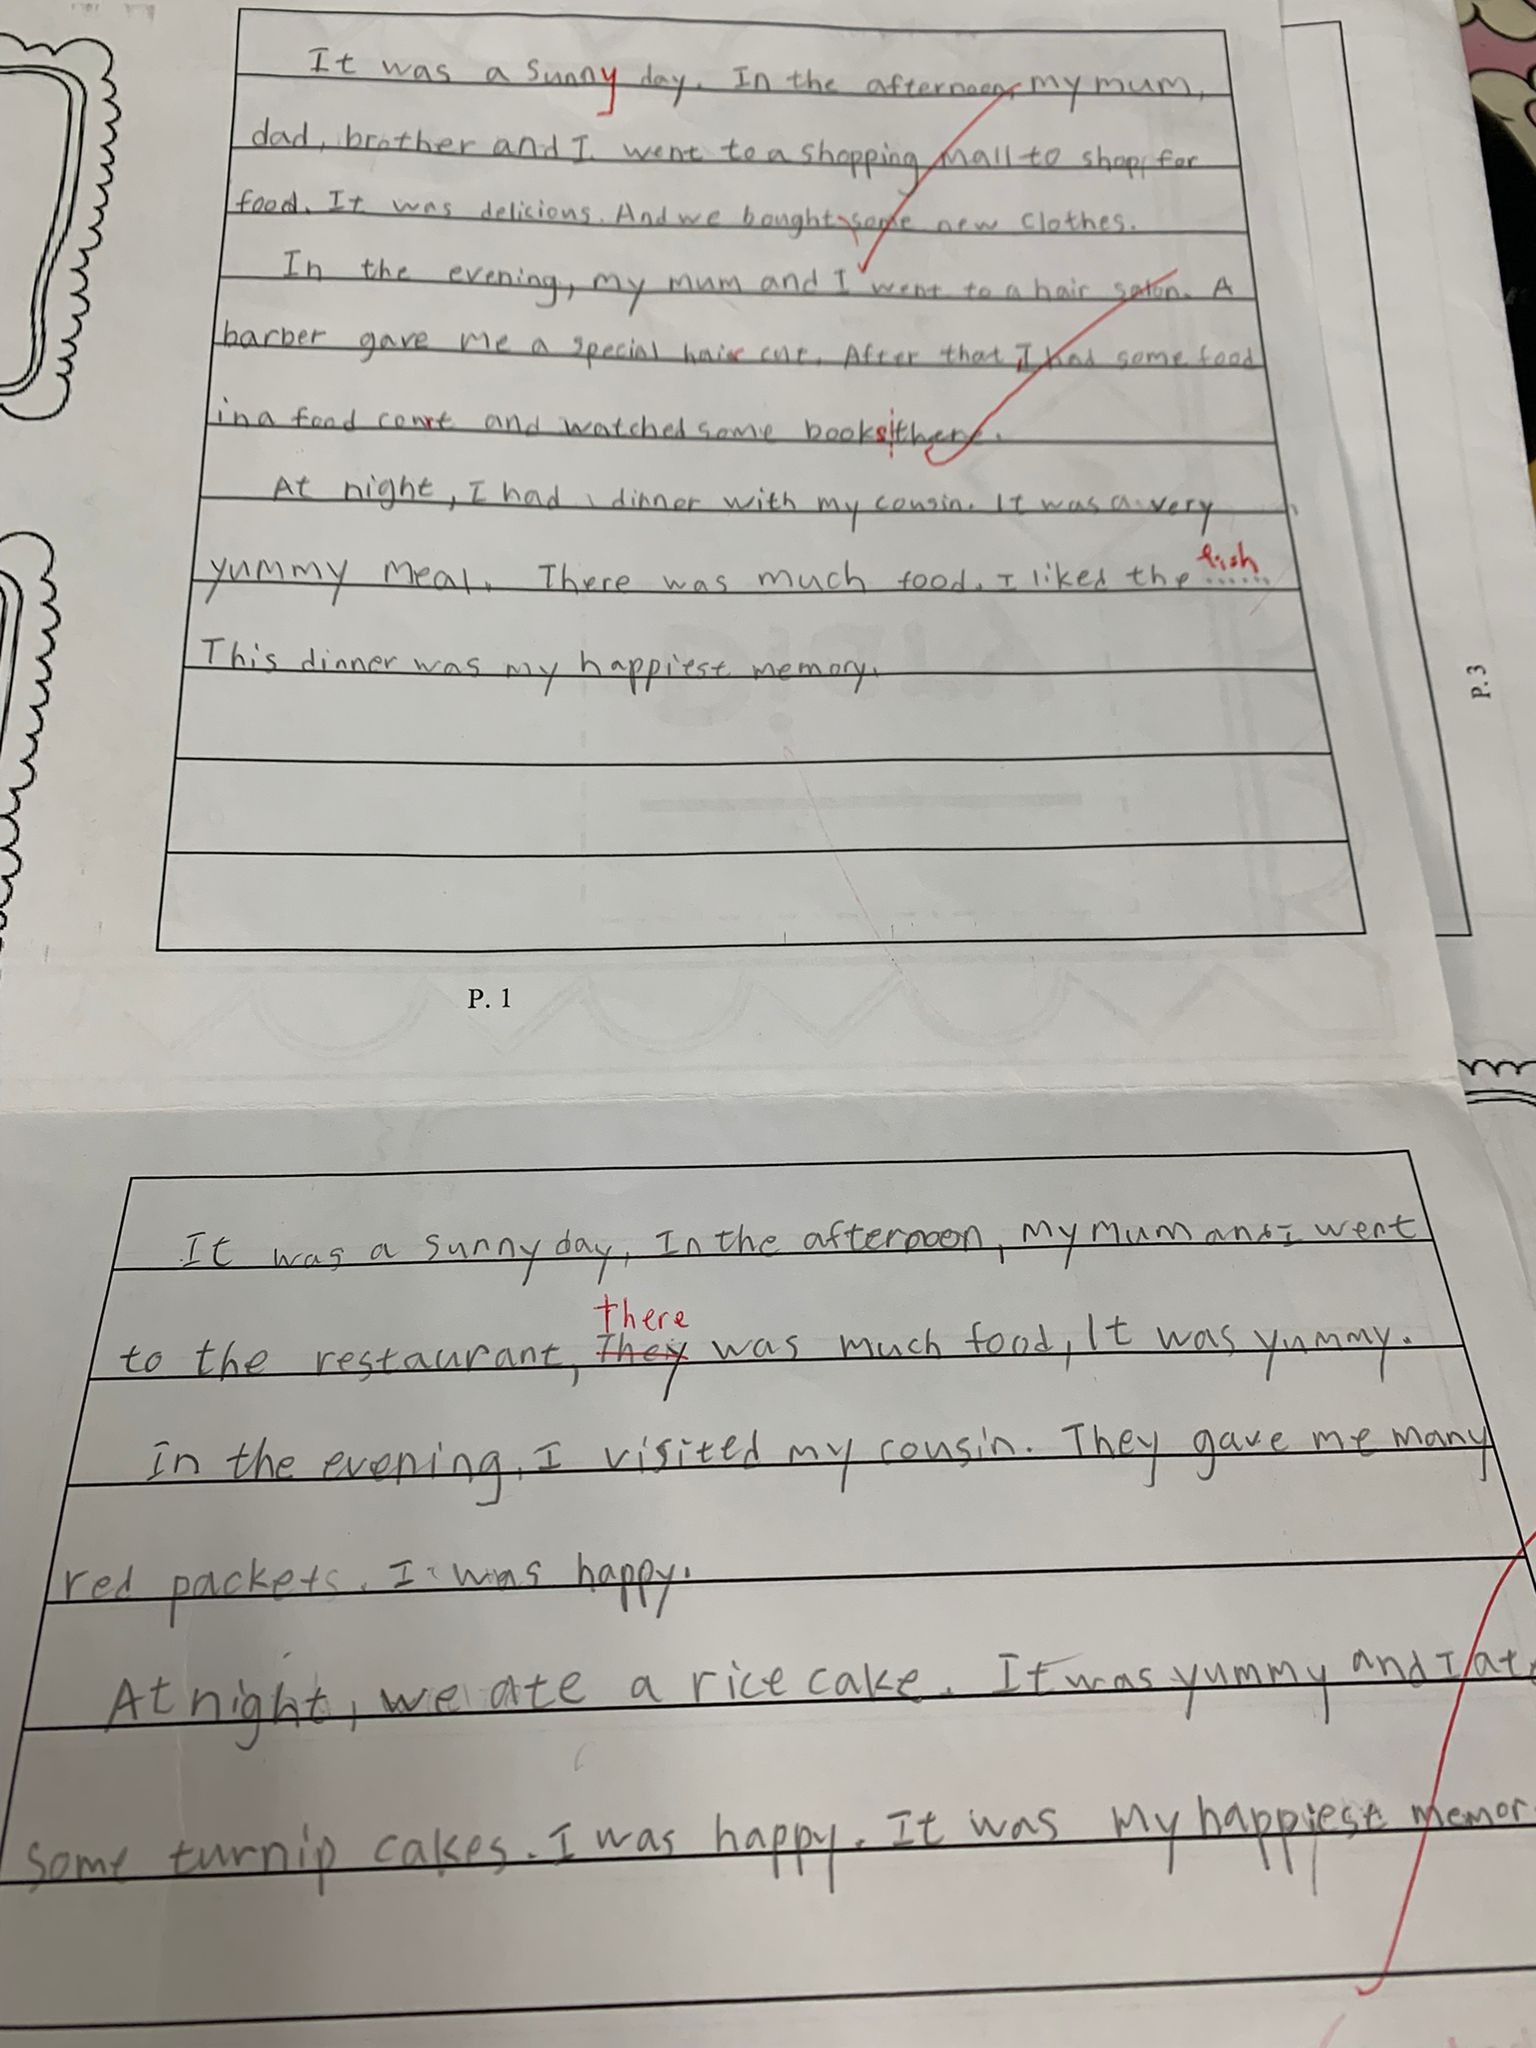 It was a sunny day. In the afternoon, my mum,
dad, brother and I went to a shopping mall to shop for
food. It was delicious. And we bought some new clothes.
In the evening, my mum and I went to a hair salon. A
barber gave me a special hair cut. After that, I had some food
in a food court and watched some books there.
At night, I had dinner with my cousin. It was a very
fish
yummy meal. There was much food. I liked the ......
This dinner was my happiest memory.
P. 1
P.3
It was a sunny day, In the afternoon, my mum and I went
there
to the restaurant, They was much food, It was yummy.
In the evening, I visited my cousin. They gave me many
red packets. I was happy.
At night, we ate a rice cake. It was yummy and I at
some turnip cakes. I was happy. It was my happiest memor